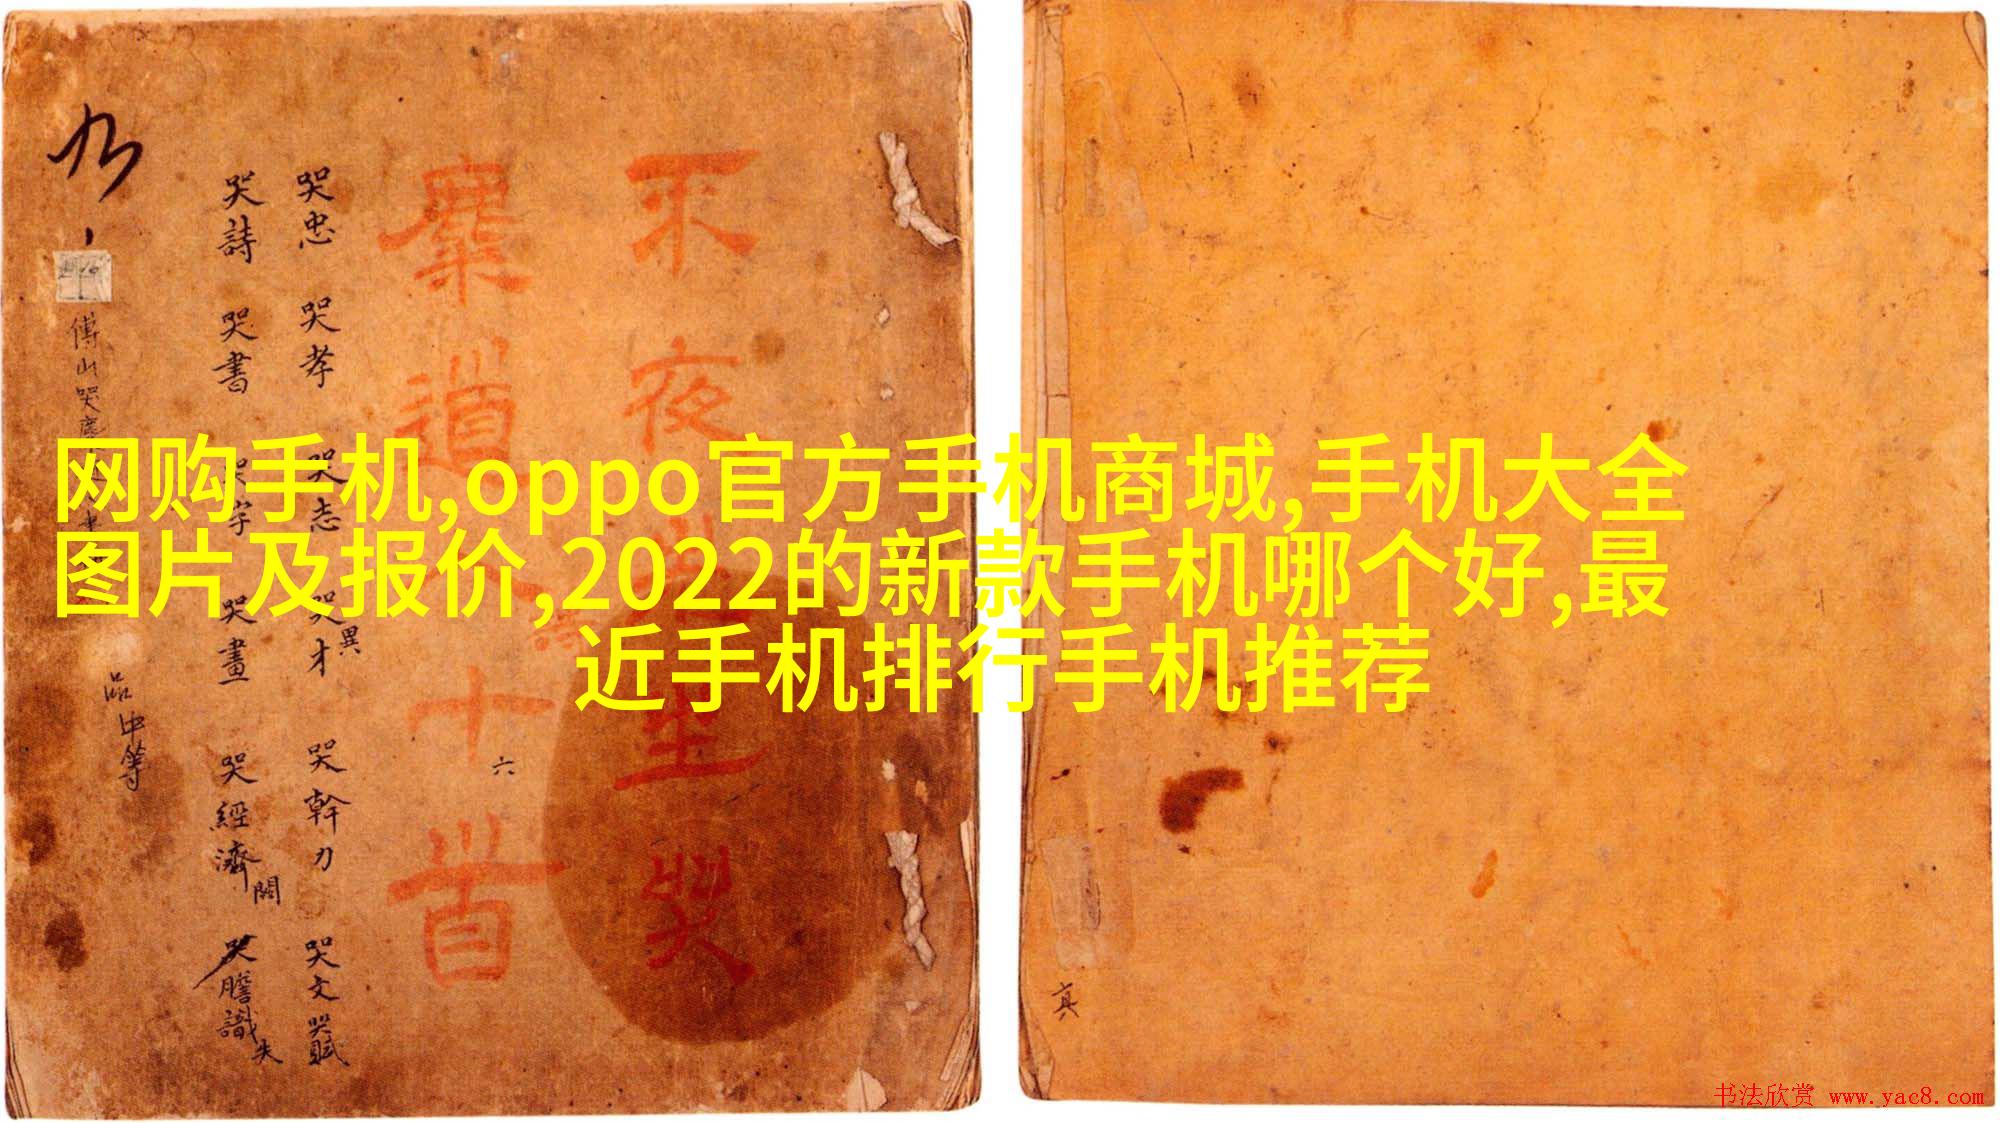 网购手机,oppo官方手机商城,手机大全
图片及报价,2022的新款手机哪个好,最
近手机排行手机推荐
不夜 坐哭
麋道人十首
哭忠 哭孝 哭志 哭才異 哭幹力 哭文 哭賦
哭詩 哭書 哭字 哭畫 哭經濟 關 哭膽識 失
六
傅山哭麋
品中等
真
书法欣赏 www.yac8.com